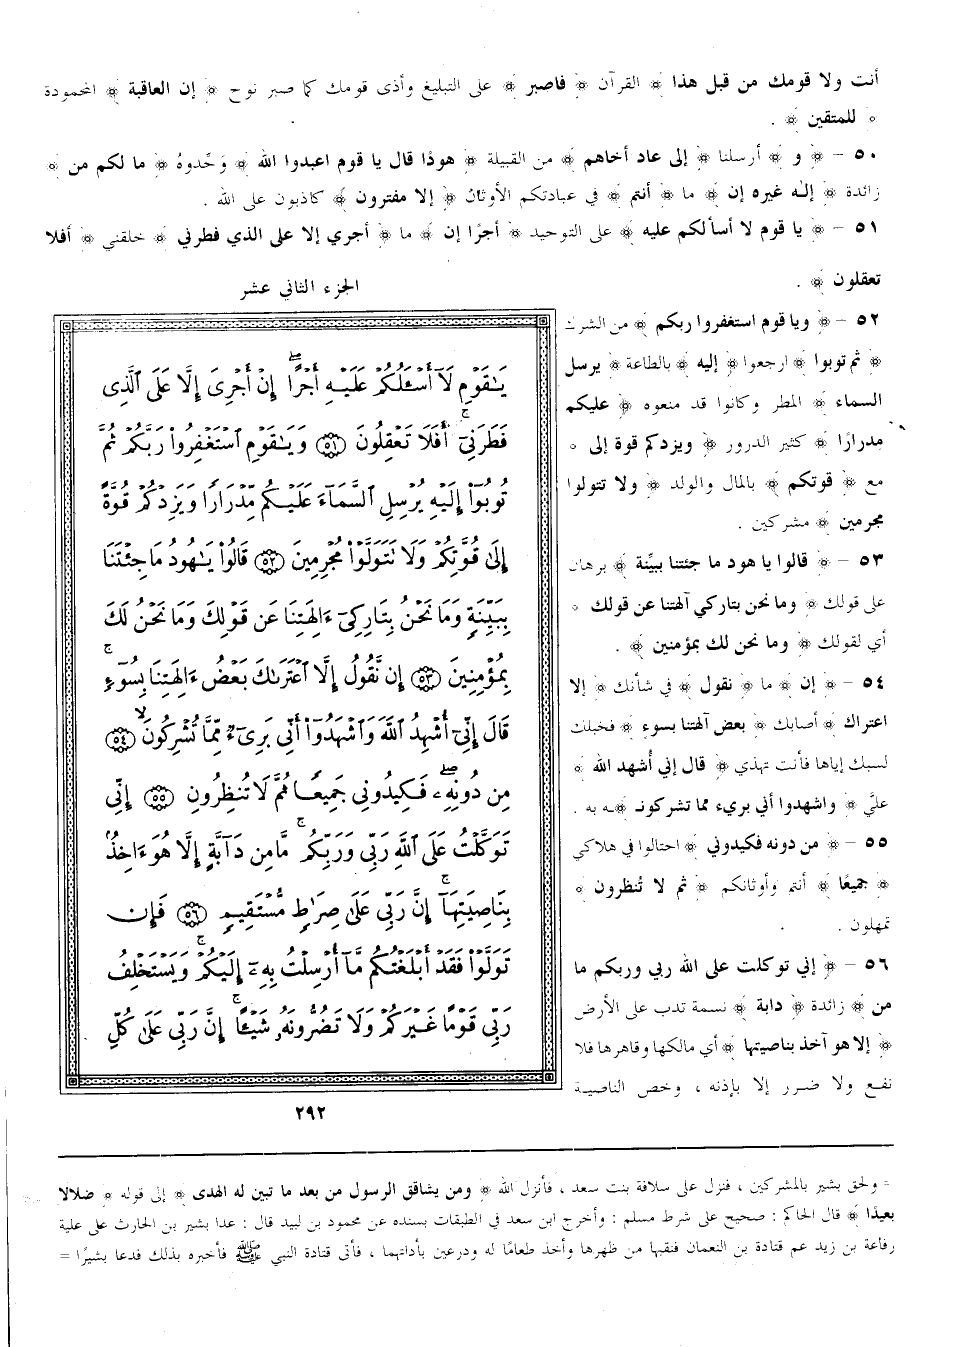 أنت ولا قومك من قبل هذا ﴾ القرآن ﴿ فاصبر ﴾ على التبليغ وأذى قومك كما صبر نوح ﴿ إن العاقبة ﴾ المحمودة
﴿ للمتقين ﴾ .
٥٠ – ﴿ و ﴾ أرسلنا ﴿ إلى عاد أخاهم ﴾ من القبيلة ﴿ هودًا قال يا قوم اعبدوا الله ﴾ وَحِّدوهُ ﴿ ما لكم من ﴾
زائدة ﴿ إلـٰه غيره إن ﴾ ما ﴿ أنتم ﴾ في عبادتكم الأوثان ﴿ إلا مفترون ﴾ كاذبون على الله .
٥١ – ﴿ يا قوم لا أسألكم عليه ﴾ على التوحيد ﴿ أجرًا إن ﴾ ما ﴿ أجري إلا على الذي فطرني ﴾ خلقني ﴿ أفلا
تعقلون ﴾ .
الجزء الثاني عشر
٥٢ – ﴿ ويا قوم استغفروا ربكم ﴾ من الشرك
﴿ ثم توبوا ﴾ ارجعوا ﴿ إليه ﴾ بالطاعة ﴿ يرسل
السماء ﴾ المطر وكانوا قد منعوه ﴿ عليكم
مدرارًا ﴾ كثير الدرور ﴿ ويزدكم قوة إلى ﴾
مع ﴿ قوتكم ﴾ بالمال والولد ﴿ ولا تتولوا
مجرمين ﴾ مشركين .
٥٣ – ﴿ قالوا يا هود ما جئتنا ببيِّنة ﴾ برهان
على قولك ﴿ وما نحن بتاركي آلهتنا عن قولك ﴾
أي لقولك ﴿ وما نحن لك بمؤمنين ﴾ .
٥٤ – ﴿ إن ﴾ ما ﴿ نقول ﴾ في شأنك ﴿ إلا
اعتراك ﴾ أصابك ﴿ بعض آلهتنا بسوء ﴾ فخبلك
لسبك إياها فأنت تهذي ﴿ قال إني أُشهد الله ﴾
عليَّ ﴿ واشهدوا أني بريء مما تشركونـ ﴾ـه به .
٥٥ – ﴿ من دونه فكيدوني ﴾ احتالوا في هلاكي
﴿ جميعًا ﴾ أنتم وأوثانكم ﴿ ثم لا تُنظرون ﴾
تمهلون .
٥٦ – ﴿ إني توكلت على الله ربي وربكم ما
من ﴾ زائدة ﴿ دابة ﴾ نسمة تدب على الأرض
﴿ إلا هو آخذ بناصيتها ﴾ أي مالكها وقاهرها فلا
نفع ولا ضرر إلا بإذنه ، وخص الناصية
يَـٰقَوْمِ لَآ أَسْـَٔلُكُمْ عَلَيْهِ أَجْرًا ۖ إِنْ أَجْرِىَ إِلَّا عَلَى ٱلَّذِى
فَطَرَنِىٓ ۚ أَفَلَا تَعْقِلُونَ ۝٥١ وَيَـٰقَوْمِ ٱسْتَغْفِرُوا۟ رَبَّكُمْ ثُمَّ
تُوبُوٓا۟ إِلَيْهِ يُرْسِلِ ٱلسَّمَآءَ عَلَيْكُم مِّدْرَارًا وَيَزِدْكُمْ قُوَّةً
إِلَىٰ قُوَّتِكُمْ وَلَا تَتَوَلَّوْا۟ مُجْرِمِينَ ۝٥٢ قَالُوا۟ يَـٰهُودُ مَا جِئْتَنَا
بِبَيِّنَةٍ وَمَا نَحْنُ بِتَارِكِىٓ ءَالِهَتِنَا عَن قَوْلِكَ وَمَا نَحْنُ لَكَ
بِمُؤْمِنِينَ ۝٥٣ إِن نَّقُولُ إِلَّا ٱعْتَرَىٰكَ بَعْضُ ءَالِهَتِنَا بِسُوٓءٍ ۗ
قَالَ إِنِّىٓ أُشْهِدُ ٱللَّهَ وَٱشْهَدُوٓا۟ أَنِّى بَرِىٓءٌ مِّمَّا تُشْرِكُونَ ۝٥٤
مِن دُونِهِۦ ۖ فَكِيدُونِى جَمِيعًا ثُمَّ لَا تُنظِرُونِ ۝٥٥ إِنِّى
تَوَكَّلْتُ عَلَى ٱللَّهِ رَبِّى وَرَبِّكُم ۚ مَّا مِن دَآبَّةٍ إِلَّا هُوَ ءَاخِذٌۢ
بِنَاصِيَتِهَآ ۚ إِنَّ رَبِّى عَلَىٰ صِرَٰطٍ مُّسْتَقِيمٍ ۝٥٦ فَإِن
تَوَلَّوْا۟ فَقَدْ أَبْلَغْتُكُم مَّآ أُرْسِلْتُ بِهِۦٓ إِلَيْكُمْ ۚ وَيَسْتَخْلِفُ
رَبِّى قَوْمًا غَيْرَكُمْ وَلَا تَضُرُّونَهُۥ شَيْـًٔا ۚ إِنَّ رَبِّى عَلَىٰ كُلِّ
٢٩٢
= ولحق بشير بالمشركين ، فنزل على سلافة بنت سعد ، فأنزل الله ﴿ ومن يشاقق الرسول من بعد ما تبين له الهدى ﴾ إلى قوله ﴿ ضلالا
بعيدًا ﴾ قال الحاكم : صحيح على شرط مسلم : وأخرج ابن سعد في الطبقات بسنده عن محمود بن لبيد قال : عدا بشير بن الحارث على علية
رفاعة بن زيد عم قتادة بن النعمان فنقبها من ظهرها وأخذ طعامًا له ودرعين بأداتهما ، فأتى قتادة النبي ﷺ فأخبره بذلك فدعا بشيرًا =